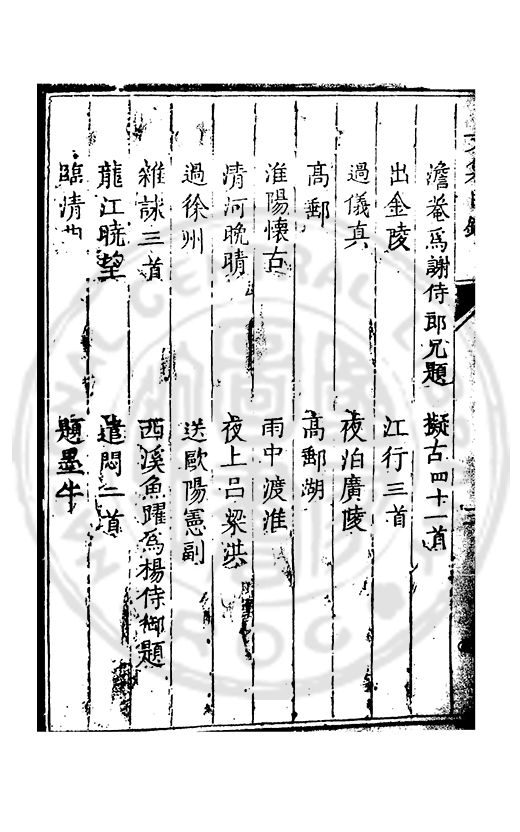 澹菴爲謝侍郎兄題　擬古四十一首
出金陵　江行三首
過儀真　夜泊廣陵
高郵　高郵湖
淮陽懷古　雨中渡淮
清河晚晴　夜上呂梁洪
過徐州　送歐陽憲副
雜詠三首　西溪魚躍爲楊侍御題
龍江曉望　遣悶二首
臨清　題墨牛